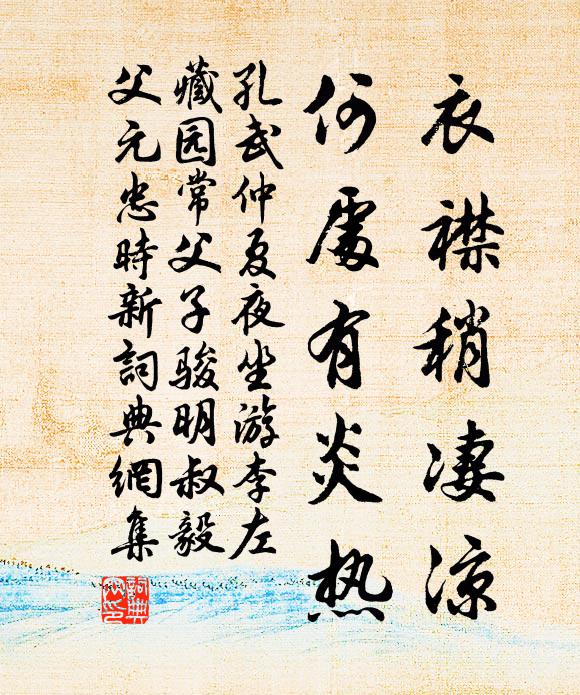 衣襟稍凄凉
何處有炎热
孔武仲夏夜坐游李左
藏园常父子骏明叔毅
父元忠時新詞典網集